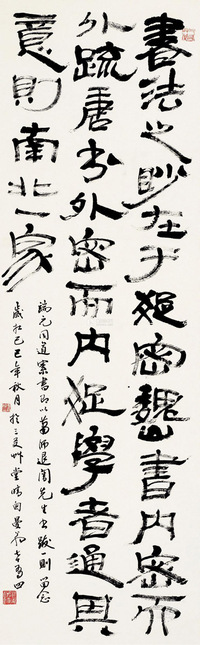 書法之妙在于疏密魏書内密而
外疏唐书外密而内疏學者通其
意則南北一家
端元同道索書即以蕭師退闇先生書跋一則留念
歲在己巳年秋月於艸堂晴窗曼翁